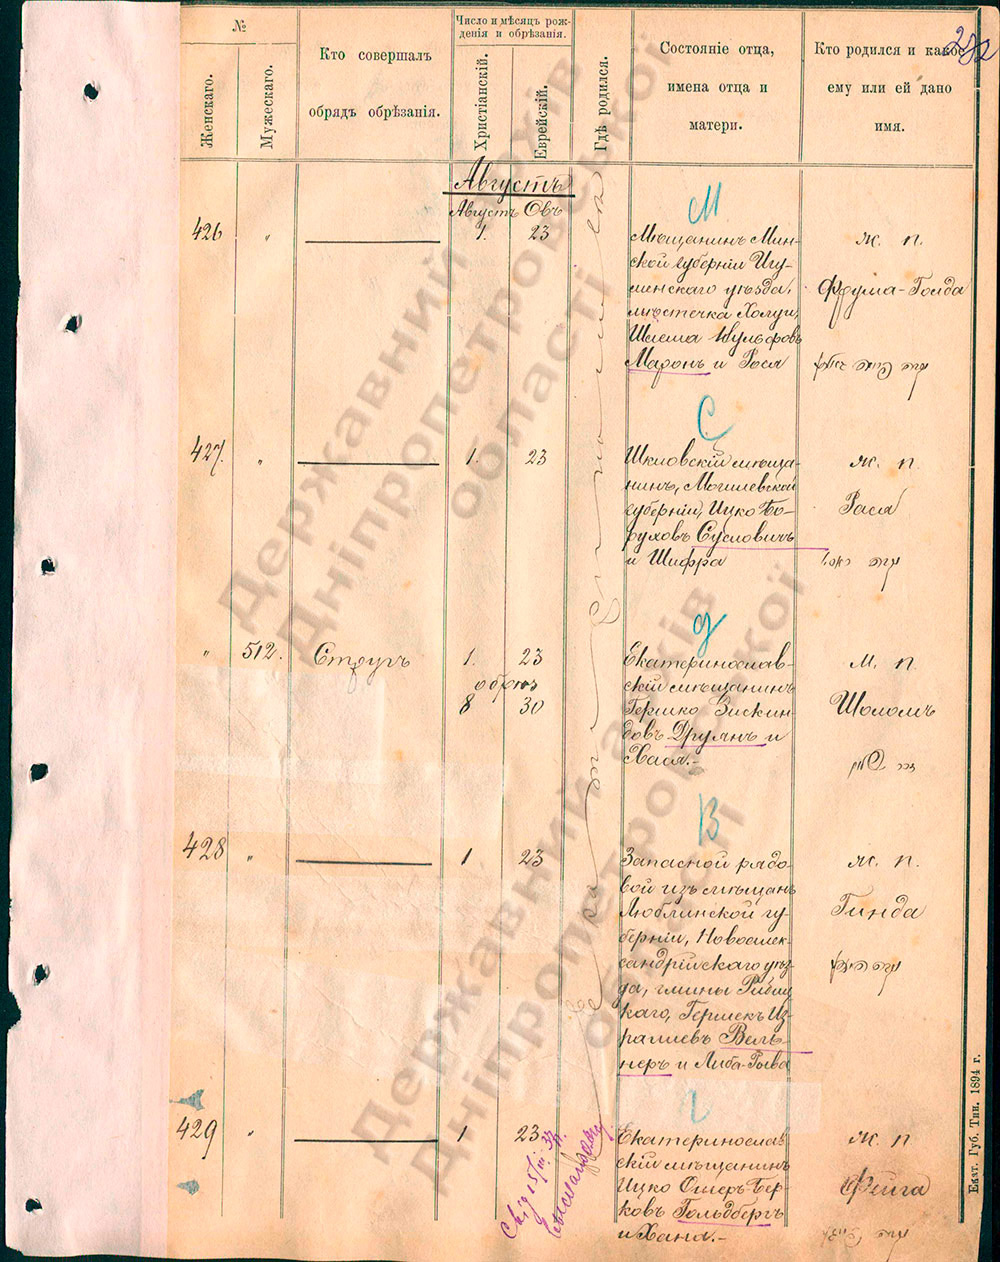 №
Женскаго.
Мужескаго.
Кто совершалъ
обрядъ обрѣзанія.
Число и мѣсяцъ рож-
денія и обрѣзанія.
Христіанскій.
Еврейскій.
Гдѣ родился.
Состояніе отца,
имена отца и
матери.
Кто родился и какое
ему или ей дано
имя.
Августъ
Августъ Овъ
426 " 1. 23
Мѣщанинъ Мин-
ской губерніи Игу-
менскаго уѣзда,
мѣстечка Холуи,
Шлема Вульфовъ
Маронъ и Рася
ж. п.
Фрума-Голда
427. " 1. 23
Шкловскій мѣща-
нинъ, Могилевской
губерніи, Ицко Бо-
руховъ Сусловичъ
и Шифра
ж. п.
Рася
" 512. Стругъ 1. 23
обрѣз
8 30
Екатеринослав-
скій мѣщанинъ
Гершко Зискин-
довъ Друянъ и
Хася.-
м. п.
Шоломъ
428 " 1 23
Запасной рядо-
вой изъ мѣщанъ
Люблинской гу-
берніи, Новоалек-
сандрійскаго уѣз-
да, гмины
каго, Гершекъ Из-
раилевъ Вель-
неръ и Либа-Рыва
ж. п.
Гинда
429 " 1 23
Екатеринослав
скій мѣщанинъ
Ицко Ошеръ Бер-
ковъ Гольдбергъ
и Хана.-
ж. п.
Фейга
Екатеринославѣ
М
С
Д
В
Г
Екат. Губ. Тип. 1894 г.
Державний архів
Дніпропетровської
області
Державний архів
Дніпропетровської
області